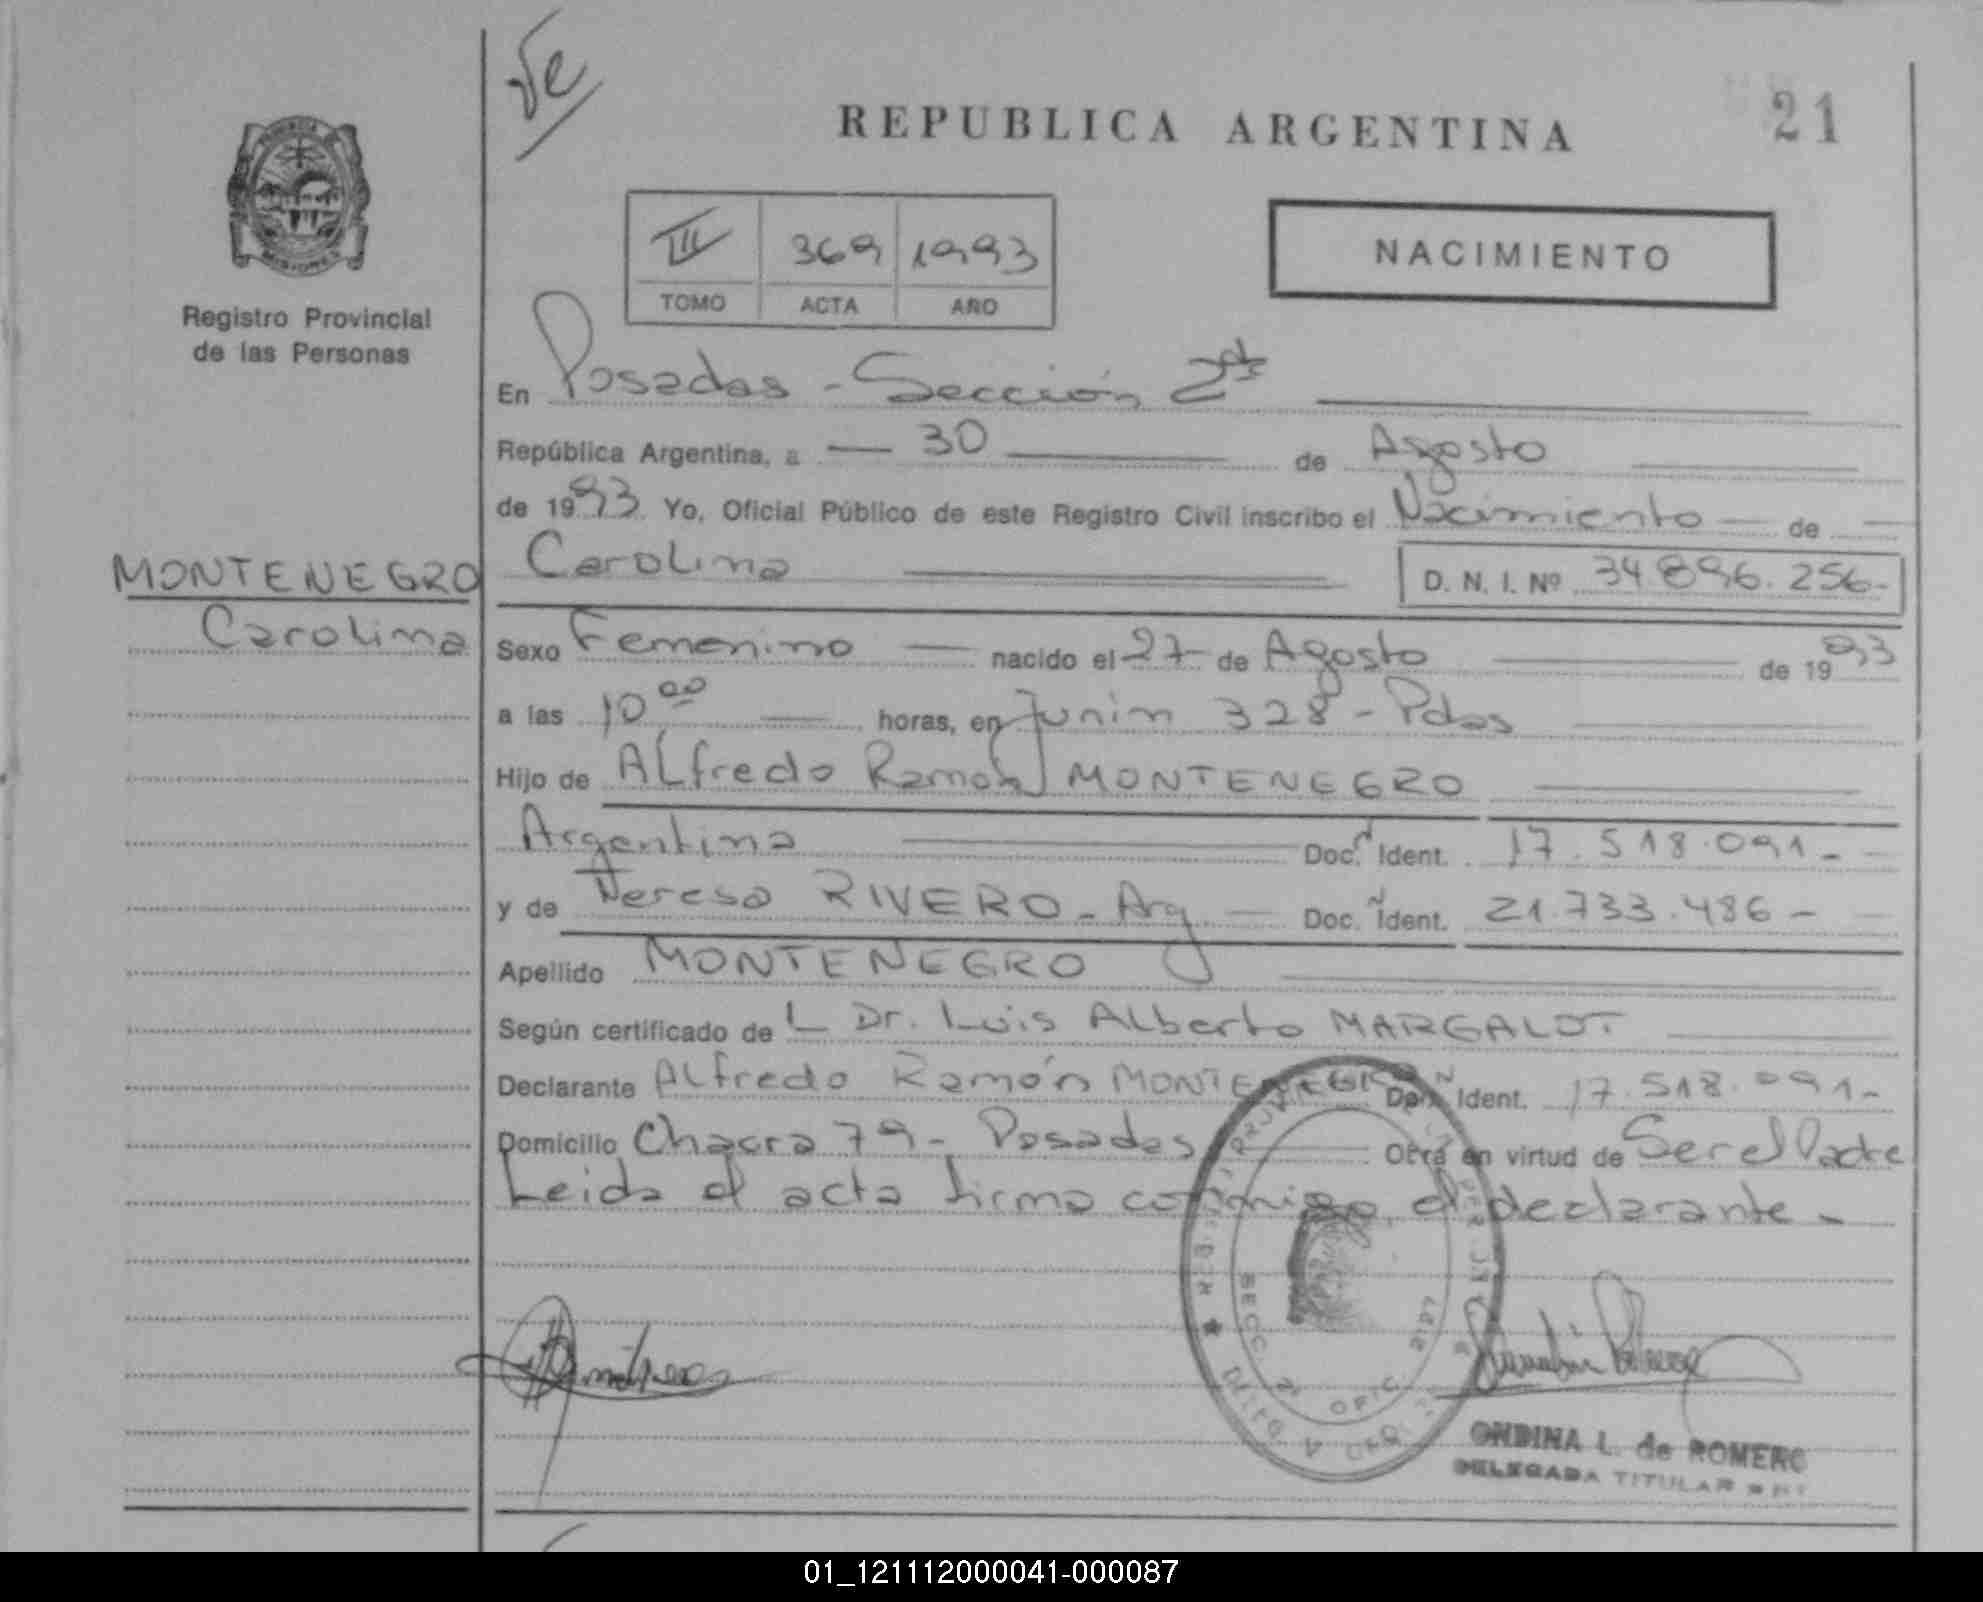 Ve
REPUBLICA ARGENTINA
21
MISIONES
Registro Provincial
de las Personas
III 369 1993
TOMO ACTA AÑO
NACIMIENTO
En Posadas - Sección 2da
República Argentina, a 30 de Agosto
de 1993 Yo, Oficial Público de este Registro Civil inscribo el Nacimiento de
MONTENEGRO
Carolina
Carolina
D. N. I. Nº 34.896.256-
Sexo Femenino nacido el 27 de Agosto de 1993
a las 10 00 horas, en Junín 328 - Pdas
Hijo de Alfredo Ramón MONTENEGRO
Argentina Doc. Ident. 17.518.091-
y de Teresa RIVERO - Arg Doc. Ident. 21.733.486-
Apellido MONTENEGRO
Según certificado de L Dr. Luis Alberto MARGALOT
Declarante Alfredo Ramón MONTENEGRO Doc. Ident. 17.518.091-
Domicilio Chacra 79 - Posadas Obra en virtud de Ser el Padre
Leida el acta firma conmigo el declarante -
SECC. 2ª OFIC.
ONDINA L. de ROMERO
DELEGADA TITULAR
01_121112000041-000087